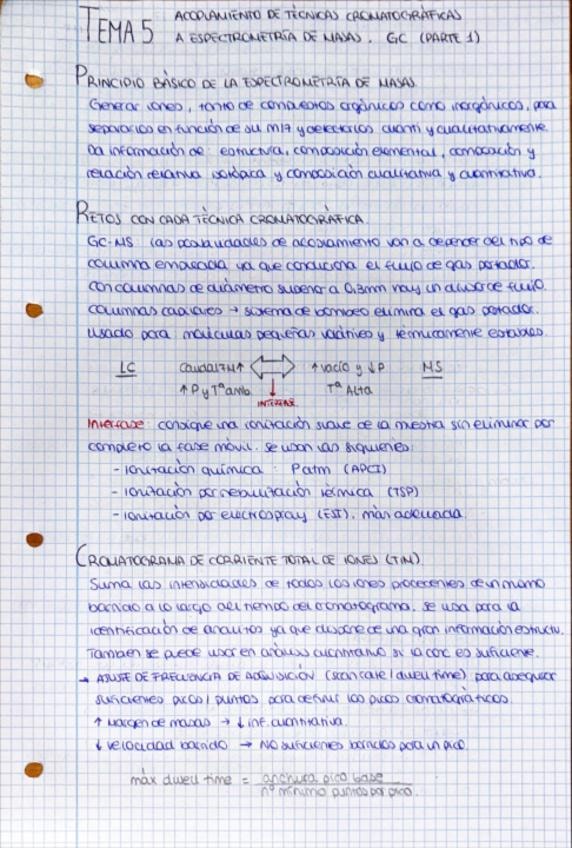 TEMA 5 ACOPLAMIENTO DE TÉCNICAS CROMATOGRÁFICAS
A ESPECTROMETRÍA DE MASAS. GC (PARTE 1)
PRINCIPIO BÁSICO DE LA ESPECTROMETRÍA DE MASAS
Generar iones, tanto de compuestos orgánicos como inorgánicos, para
separarlos en función de su m/z y detectarlos cuanti y cualitativamente.
Da información de: estructura, composición elemental, composición y
relación relativa isotópica y composición cualitativa y cuantitativa.
RETOS CON CADA TÉCNICA CROMATOGRÁFICA.
GC-MS las posibilidades de acoplamiento van a depender del tipo de
columna empleada ya que condiciona el flujo de gas portador.
Con columnas de diámetro superior a 0,3mm hay un divisor de flujo.
Columnas capilares → sistema de bombeo elimina el gas portador.
Usado para moléculas pequeñas volátiles y térmicamente estables.
LC Caudal ↑ ↑ vacío y ↓P MS
↑ P y Tª amb. Tª Alta
INTERFASE
Interfase: consigue una ionización suave de la muestra sin eliminar por
completo la fase móvil. Se usan las siguientes:
- ionización química: Patm (APCI)
- ionización por nebulización térmica (TSP)
- ionización por electrospray (ESI). más adecuada.
CROMATOGRAMA DE CORRIENTE TOTAL DE IONES (TIN)
Suma las intensidades de todos los iones procedentes de un mismo
barrido a lo largo del tiempo del cromatograma. Se usa para la
identificación de analitos ya que dispone de una gran información estructu.
También se puede usar en análisis cuantitativo si la conc es suficiente.
→ AJUSTE DE FRECUENCIA DE ADQUISICIÓN (scan rate / dwell time) para adquirir
suficientes picos / puntos para definir los picos cromatográficos.
↑ Margen de masas → ↓ inf. cuantitativa.
↓ velocidad barrido → NO suficientes barridos para un pico.
máx dwell time = anchura pico base
nº mínimo puntos por pico.